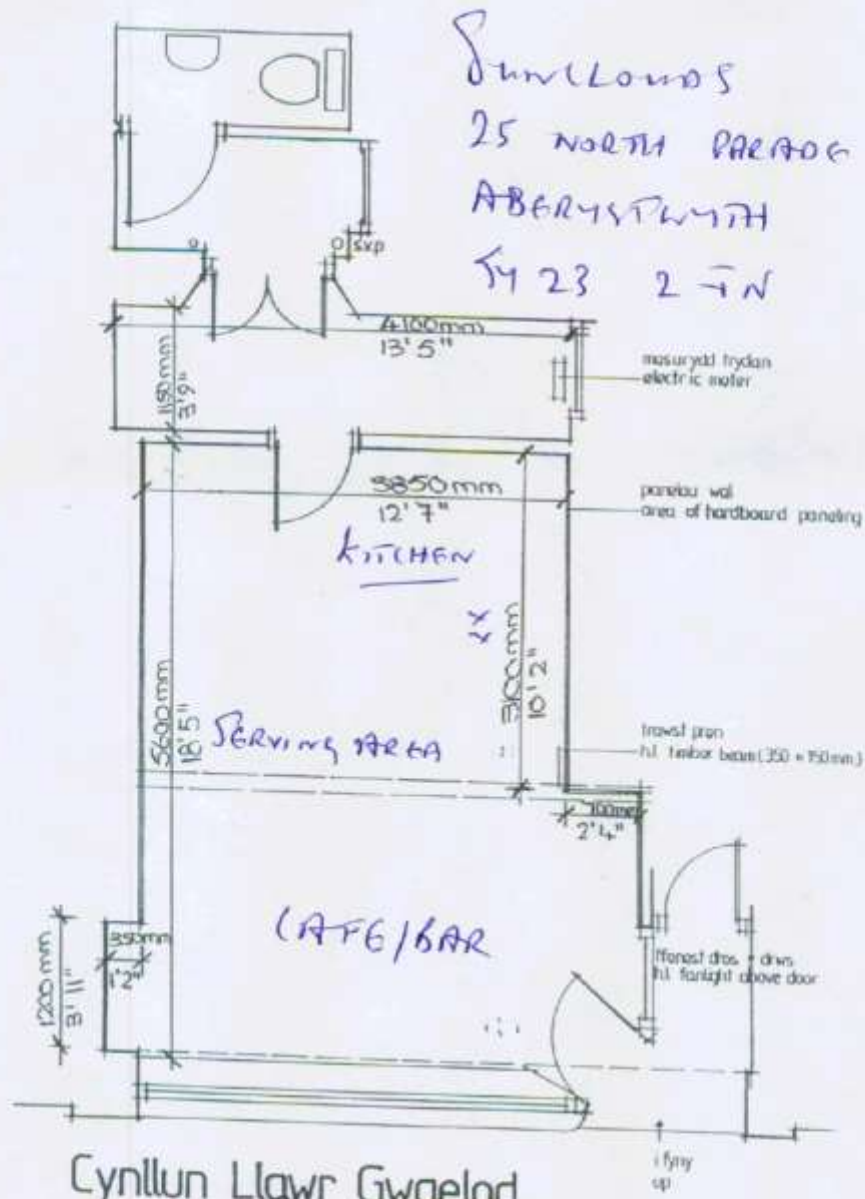 SunClouds
25 NORTH PARADE
ABERYSTWYTH
SY 23 2
o
o sxp
4100mm
13'5"
1150mm
3'9"
mesurydd trydan
electric meter
3850mm
12'7"
KITCHEN
panelau wal
area of hardboard paneling
3100mm
10'2"
5600mm
18'5"
SERVING AREA
trawst pren
h.l. timber beam (350 × 150mm)
700mm
2'4"
CAFE/BAR
350mm
1'2"
1200mm
3'11"
ffenest dros drws
h.l. fanlight above door
i fyny
up
Cynllun Llawr Gwaelod